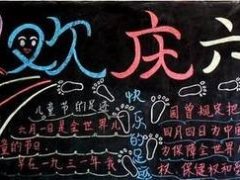 欢庆六
儿童节的足迹
六月一日是全世界儿
童的节日。
早在一九三一年我
快乐的足
国曾规定把
四月四日为中
为保障全世界
权、保健权和受